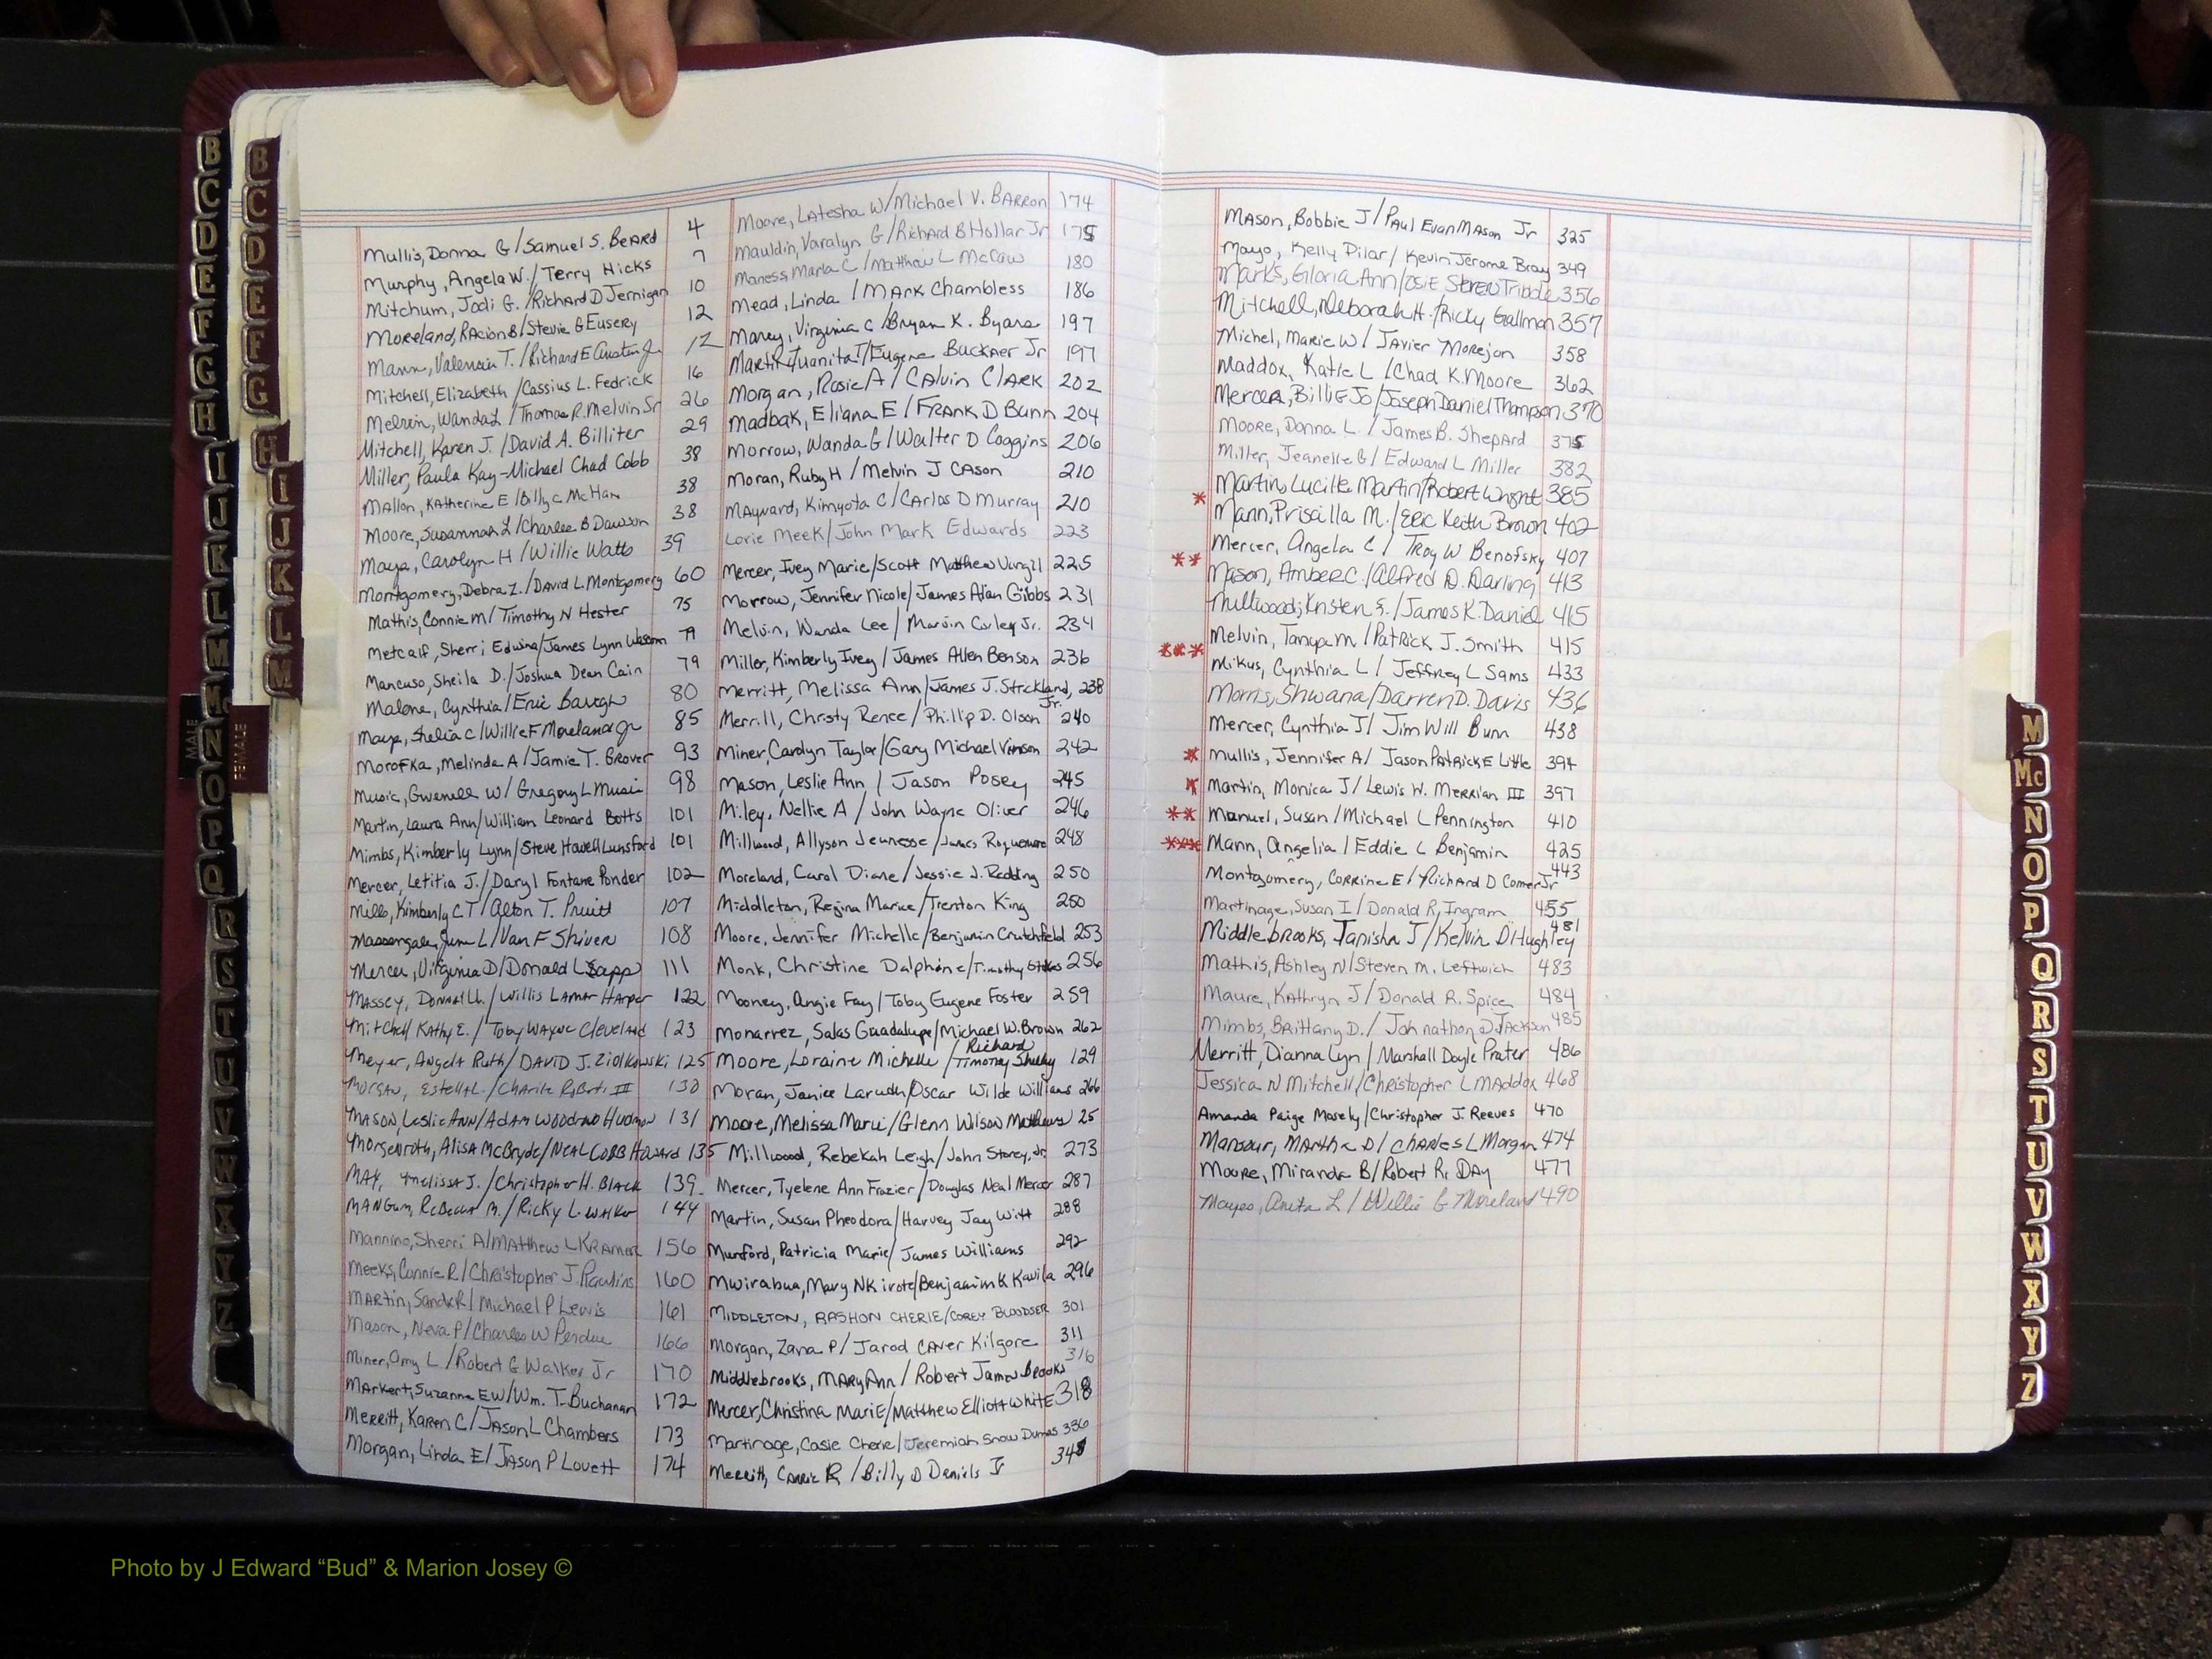 Mullis, Donna G/Samuel S. Beard 4
Murphy, Angela W./Terry Hicks 7
Mitchum, Jodi G./Richard D Jernigan 10
Moreland, Racion B/Stevie G Eusery 12
Mann, T./Richard E Austin Jr 12
Mitchell, Elizabeth/Cassius L. Fedrick 16
Melvin, Wanda L/Thomas R. Melvin Sr 26
Mitchell, Karen J./David A. Billiter 29
Miller, Paula Kay-Michael Chad Cobb 38
Mallon, Katherine E/Billy C McHan 38
Moore, Susannah L/Charles B Dawson 38
Mays, Carolyn H/Willie Watts 39
Montgomery, Debra Z./David L. Montgomery 60
Mathis, Connie M/Timothy N Hester 75
Metcalf, Sherri Edwina/James Lynn 79
Mancuso, Sheila D./Joshua Dean Cain 79
Malone, Cynthia/Eric Baugh 80
Mays, Shelia C/Willie F Moreland Jr 85
Morofka, Melinda A/Jamie T. Grover 93
Music, Gwenell W/Gregory L Music 98
Martin, Laura Ann/William Leonard Botts 101
Mimbs, Kimberly Lynn/Steve Howell Lunsford 101
Mercer, Letitia J./Daryl Fontane Ponder 102
Mills, Kimberly C T/Alton T. Pruitt 107
Massengale, June L/Van F Shiver 108
Mercer, Virginia D/Donald L Sapp 111
Massey, Donna W./Willis Lamar Harper 122
Mitchell Kathy E./Toby Wayne Cleveland 123
Meyer, Angela Ruth/David J. Ziolkowski 125
Morgan, Estella L./Charlie Roberts III 130
Mason, Leslie Ann/Adam Woodrow Hudson 131
Morgenroth, Alisa McBryde/Neal Cobb Howard 135
May, Melissa J./Christopher H. Black 139
Mangum, Rebecca M./Ricky L. Walker 144
Mannino, Sherri A/Matthew L Kramer 156
Meeks, Connie R/Christopher J. Rawlins 160
Martin, Sandr R/Michael P Lewis 161
Mason, Neva P/Charles W Perdue 166
Miner, Amy L/Robert G Walker Jr 170
Markert, Suzanne E W/Wm. T. Buchanan 172
Merritt, Karen C/Jason L Chambers 173
Morgan, Linda E/Jason P Lovett 174
Moore, Latesha W/Michael V. Barron 174
Mauldin, Varalyn G/Richard B Hollar Jr 175
Maness, Marla C/Matthew L McCraw 180
Mead, Linda/Mark Chambless 186
Maney, Virginia C/Bryan K. Byars 197
Martin, Juanita T/Eugene Buckner Jr 197
Morgan, Rosie A/Calvin Clark 202
Madbak, Eliana E/Frank D Bunn 204
Morrow, Wanda G/Walter D Coggins 206
Moran, Ruby H/Melvin J Cason 210
Mayward, Kimyota C/Carlos D Murray 210
Lorie Meek/John Mark Edwards 223
Mercer, Ivey Marie/Scott Matthew Virgil 225
Morrow, Jennifer Nicole/James Alan Gibbs 231
Melvin, Wanda Lee/Marvin Curley Jr. 234
Miller, Kimberly Ivey/James Allen Benson 236
Merritt, Melissa Ann/James J. Strickland, Jr. 238
Merrill, Christy Renee/Phillip D. Olson 240
Miner, Carolyn Taylor/Gary Michael Vinson 242
Mason, Leslie Ann/Jason Posey 245
Miley, Nellie A/John Wayne Oliver 246
Millwood, Allyson Jeunesse/James Roquemore 248
Moreland, Carol Diane/Jessie J. Redding 250
Middleton, Regina Marice/Trenton King 250
Moore, Jennifer Michelle/Benjamin Crutchfield 253
Monk, Christine Dalphine/Timothy Stokes 256
Mooney, Angie Fay/Toby Eugene Foster 259
Monarrez, Salas Guadalupe/Michael W. Brown 262
Moore, Loraine Michelle/Timothy Richard Sheehy 129
Moran, Janice Larueth/Oscar Wilde Williams 266
Moore, Melissa Marie/Glenn Wilson Matthews 25
Millwood, Rebekah Leigh/John Storey, Jr. 273
Mercer, Tyelene Ann Frazier/Douglas Neal Mercer 287
Martin, Susan Pheodora/Harvey Jay Witt 288
Munford, Patricia Marie/James Williams 292
Mwirabua, Mary NKirote/Benjamin K Kavila 296
Middleton, Rashon Cherie/Corey Bloodser 301
Morgan, Zana P/Jarod Caver Kilgore 311
Middlebrooks, Mary Ann/Robert James Brooks 316
Mercer, Christina Marie/Matthew Elliott White 318
Martinage, Casie Cherie/Jeremiah Snow Dumas 336
Merritt, Carrie R/Billy D Daniels Jr 348
Mason, Bobbie J/Paul Evan Mason Jr 325
Mayo, Kelly Pilar/Kevin Jerome Bray 349
Marks, Gloria Ann/Osie Steven Tribble 356
Mitchell, Deborah H./Ricky Gallman 357
Michel, Marie W/Javier Morejon 358
Maddox, Katie L/Chad K. Moore 362
Mercer, Billie Jo/Joseph Daniel Thampson 370
Moore, Donna L./James B. Shepard 375
Miller, Jeanelle G/Edward L Miller 382
Martin, Lucille Martin/Robert Wright 385
* Mann, Priscilla M./Eric Keith Brown 402
Mercer, Angela C/Troy W Benofsky 407
** Mason, Amber C./Alfred D. Darling 413
Millwood, Kristen S./James K. Daniel 415
Melvin, Tanya M/Patrick J. Smith 415
*** Mikus, Cynthia L/Jeffrey L Sams 433
Morris, Shwana/Darren D. Davis 436
Mercer, Cynthia J/Jim Will Bunn 438
* Mullis, Jennifer A/Jason Patrick E Little 394
* Martin, Monica J/Lewis W. Merrian III 397
** Manuel, Susan/Michael L Pennington 410
*** Mann, Angelia/Eddie L Benjamin 425
Montgomery, Corrine E/Richard D Comer Jr 443
Martinage, Susan I/Donald R. Ingram 455
Middlebrooks, Tanisha J/Kelvin D Hughley 481
Mathis, Ashley N/Steven M. Leftwich 483
Maure, Kathryn J/Donald R. Spice 484
Mimbs, Brittany D./Johnathon D Jackson 485
Merritt, Dianna Lyn/Marshall Doyle Prater 486
Jessica N Mitchell/Christopher L Maddox 468
Amanda Paige Mosely/Christopher J. Reeves 470
Mansour, Martha D/Charles L Morgan 474
Moore, Miranda B/Robert R. Day 477
Mayes, Anita L/Willie G Moreland 490
B
C
D
E
F
G
H
I
J
K
L
M
N
O
P
Q
R
S
T
U
V
W
X
Y
Z
MALE
FEMALE
B
C
D
E
F
G
H
I
J
K
L
M
M
Mc
N
O
P
Q
R
S
T
U
V
W
X
Y
Z
Photo by J Edward “Bud” & Marion Josey ©